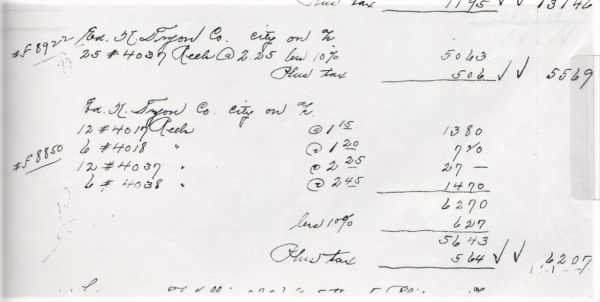 Plus tax 1195 √√ 13146
Ed. K. Tryon Co. city on a/c
#F8922 25 #4037 Reels @ 2.25 less 10% 5063
Plus tax 506 √√ 5569
Ed. K. Tryon Co. city on a/c.
12 #4017 Reels @ 1 15 1380
6 #4018 " @ 1 20 720
#F8850 12 #4037 " @ 2 25 27 —
6 #4038 " @ 2 45 1470
6270
less 10% 627
5643
Plus tax 564 √√ 6207